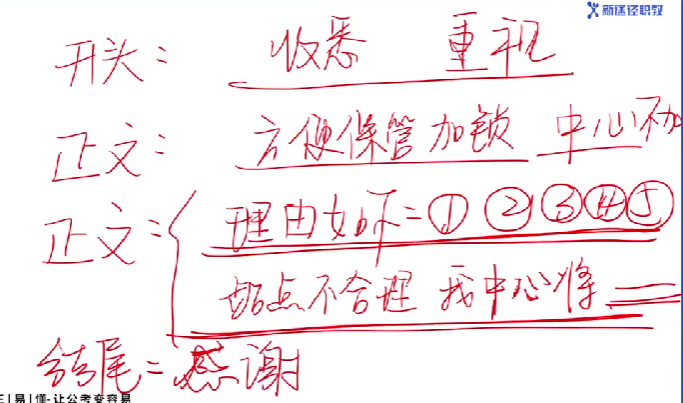 新途径职教
开头: 收悉 重视
正文: 方便保管加锁 中心不加
正文: 理由如下: ① ② ③ ④ ⑤
站点不合理 我中心将
结尾: 感谢
三|易|懂-让公考变容易